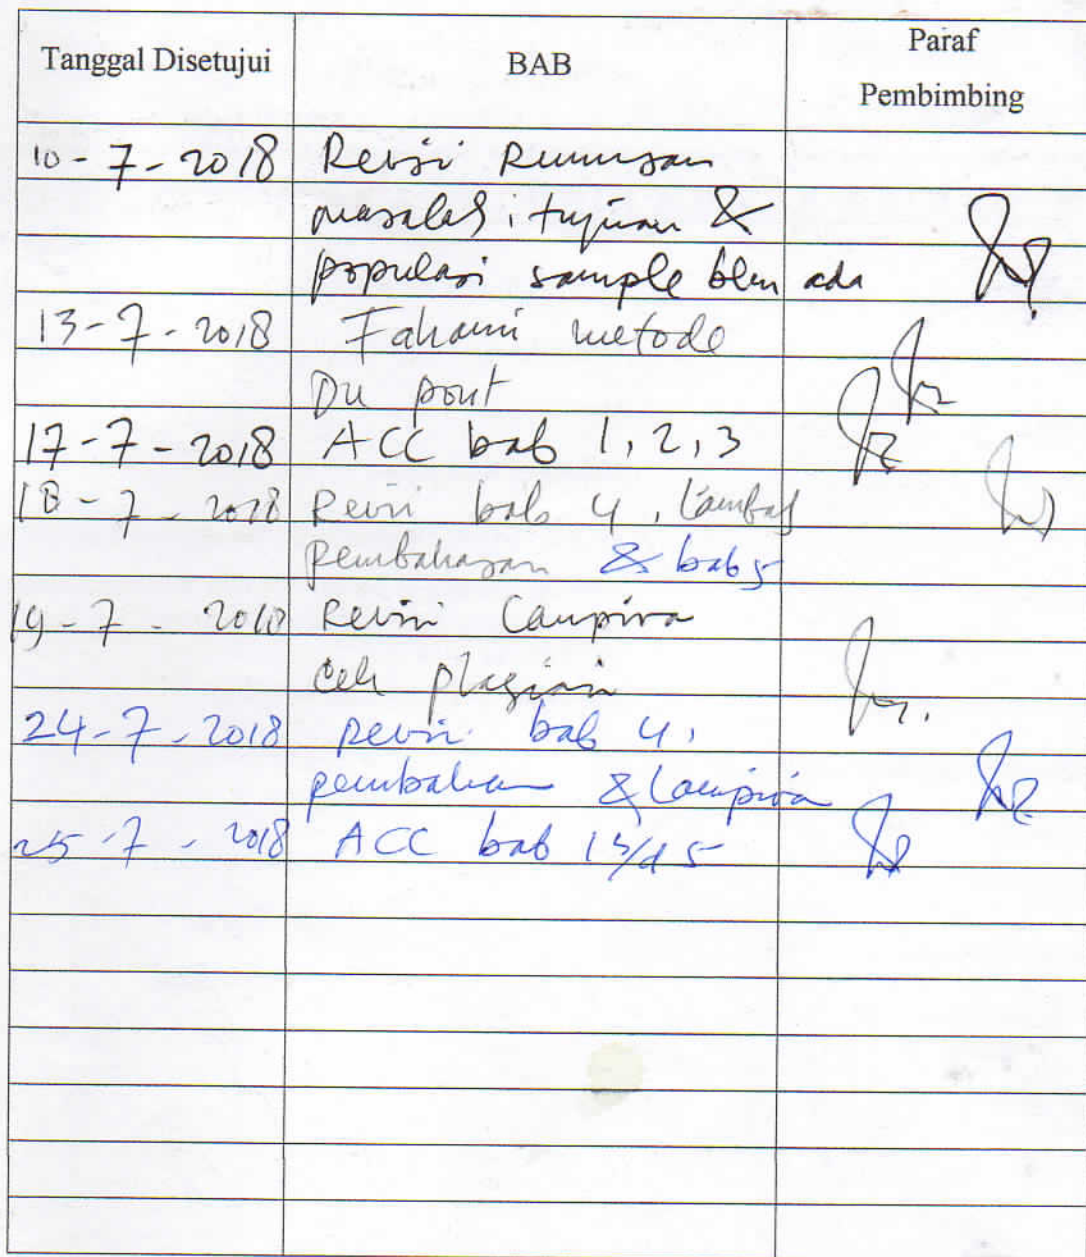 Tanggal Disetujui BAB Paraf
Pembimbing
10-7-2018 Revisi Rumusan
masalah; tujuan &
populasi sample blm ada
13-7-2018 Fahami metode
Du pont
17-7-2018 ACC bab 1, 2, 3
18-7-2018 Revisi bab 4,
pembahasan & bab 5
19-7-2018 Revisi
cek
24-7-2018 Revisi bab 4,
&
25-7-2018 ACC bab 1 s/d 5